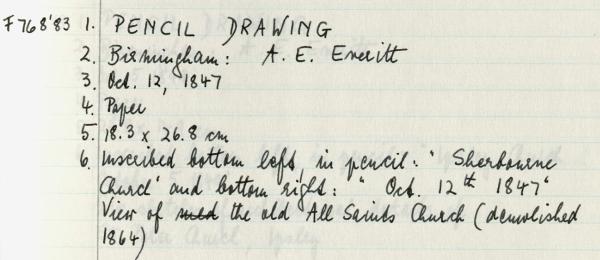 F768'83 1. PENCIL DRAWING
2. Birmingham: A. E. Everitt
3. Oct. 12, 1847
4. Paper
5. 18.3 x 26.8 cm
6. Inscribed bottom left, in pencil: "Sherbourne
Church" and bottom right: "Oct. 12th 1847"
View of the old All Saints Church (demolished
1864)